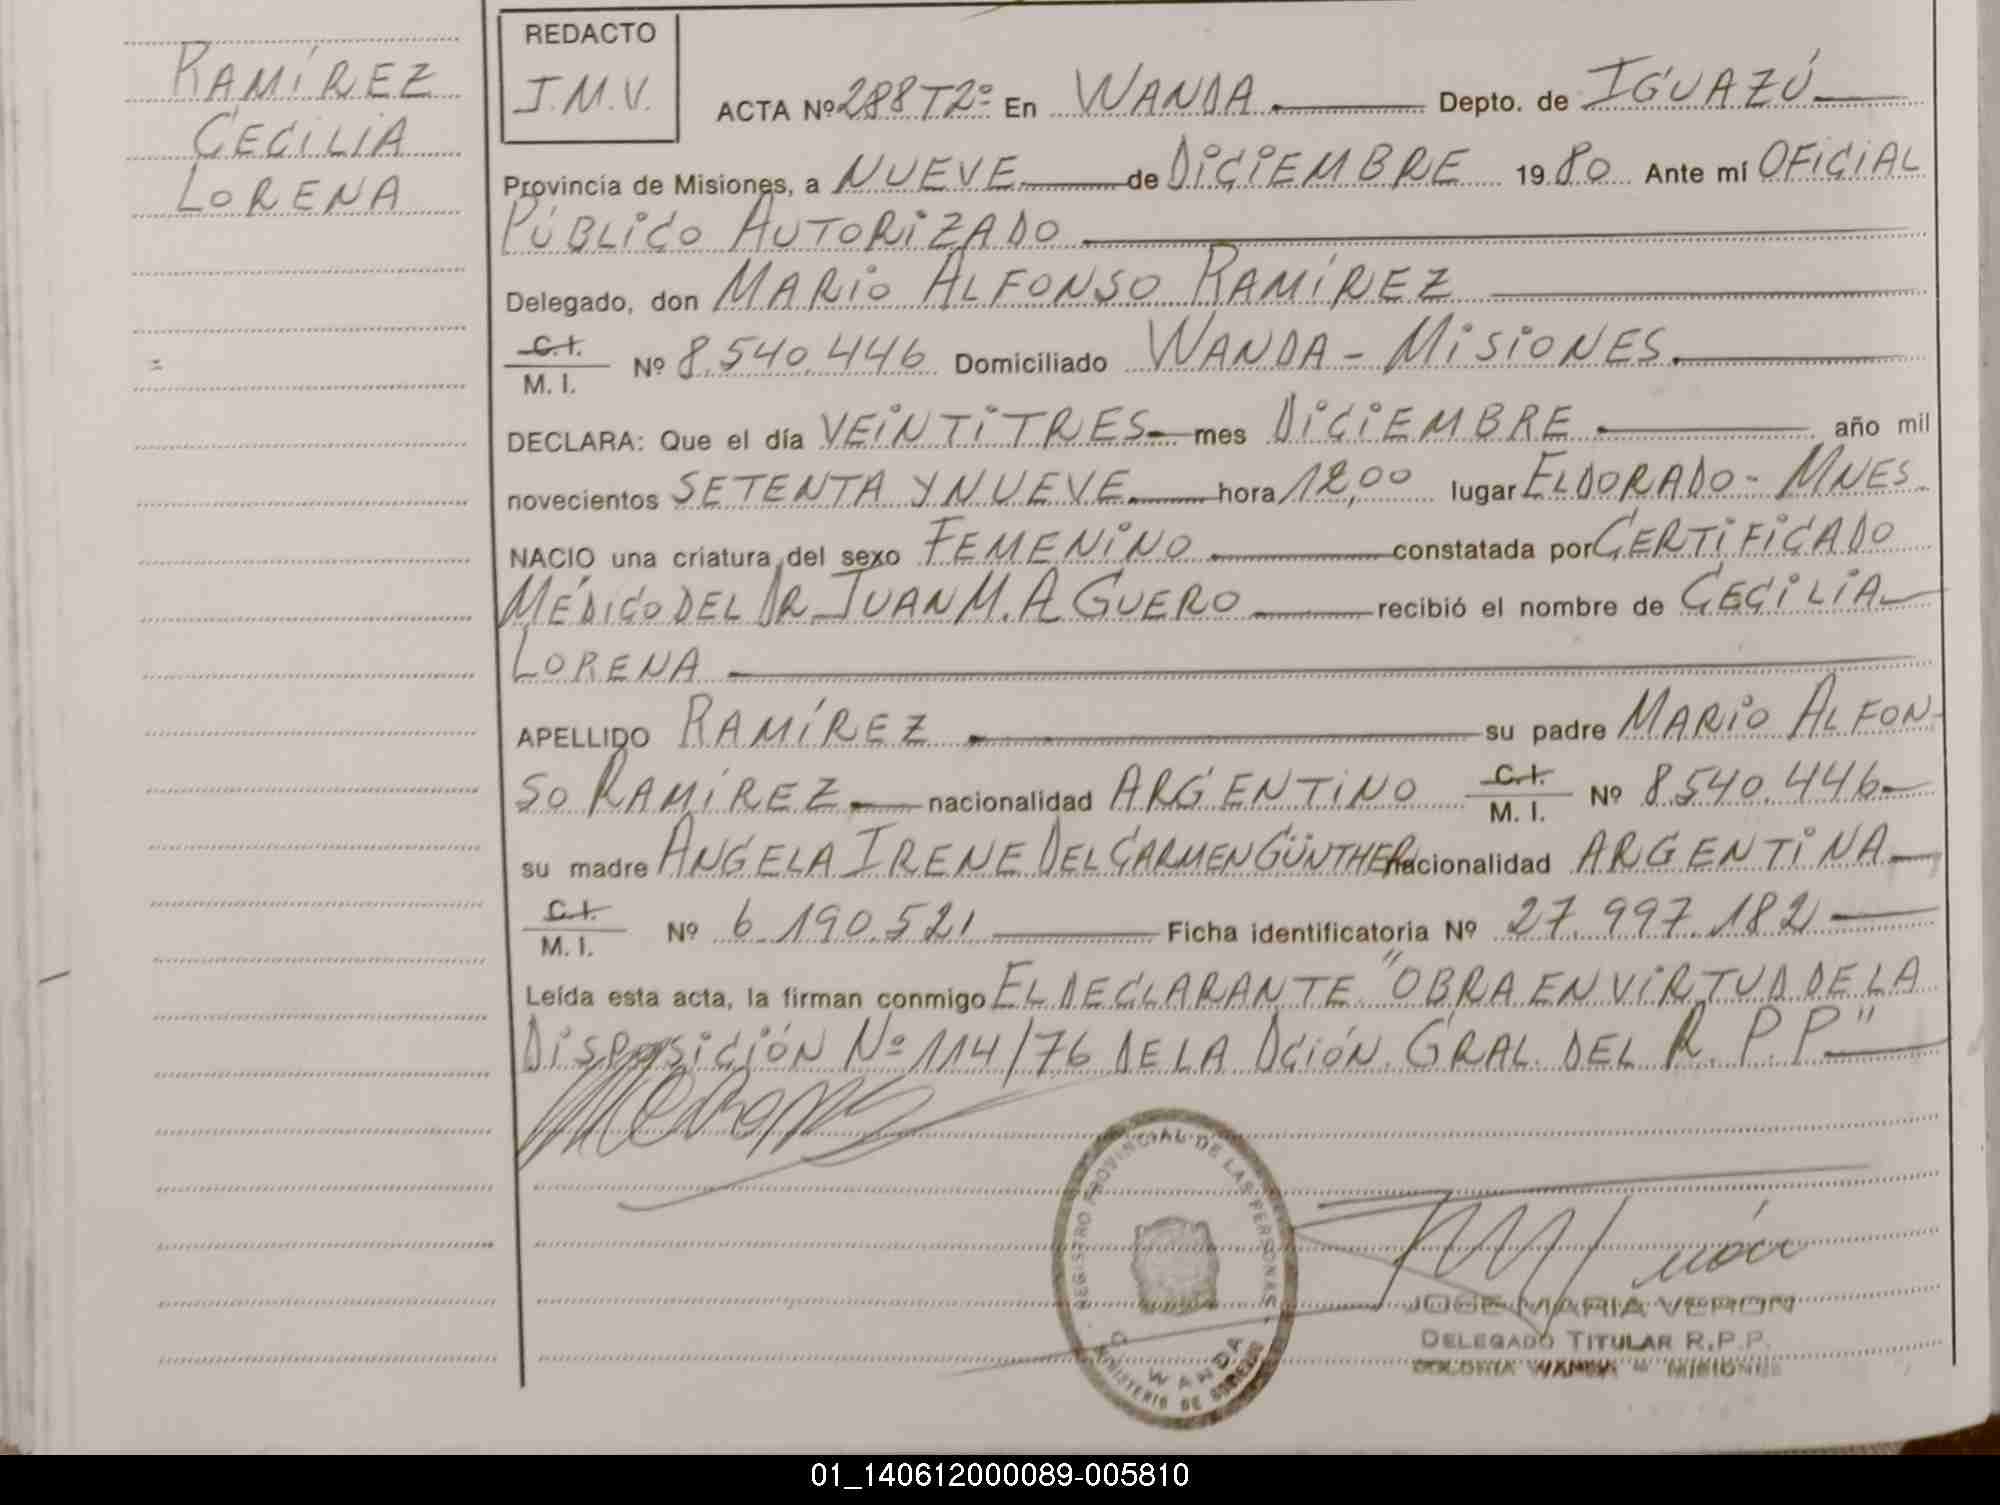 RAMÍREZ
CECILIA
LORENA
REDACTO
J.M.V.
ACTA Nº 288 T2º En WANDA Depto. de IGUAZÚ
Provincia de Misiones, a NUEVE de DICIEMBRE 1980 Ante mí OFICIAL
PÚBLICO AUTORIZADO
Delegado, don MARIO ALFONSO RAMÍREZ
C.I.
M. I. Nº 8.540.446 Domiciliado WANDA - MISIONES
DECLARA: Que el día VEINTITRES mes DICIEMBRE año mil
novecientos SETENTA Y NUEVE hora 12,00 lugar ELDORADO - MNES.
NACIO una criatura del sexo FEMENINO constatada por CERTIFICADO
MÉDICO DEL DR. JUAN M. AGUERO recibió el nombre de CECILIA
LORENA
APELLIDO RAMÍREZ su padre MARIO ALFON-
SO RAMÍREZ nacionalidad ARGENTINO C.I.
M. I. Nº 8.540.446
su madre ANGELA IRENE DEL CARMEN GÜNTHER nacionalidad ARGENTINA
C.I.
M. I. Nº 6.190.521 Ficha identificatoria Nº 27.997.182
Leída esta acta, la firman conmigo EL DECLARANTE "OBRA EN VIRTUD DE LA
DISPOSICIÓN Nº 114/76 DE LA DCIÓN. GRAL. DEL R.P.P"
REGISTRO PROVINCIAL DE LAS PERSONAS
WANDA
MINISTERIO DE GOBIERNO
JOSE MARIA VERON
DELEGADO TITULAR R.P.P.
COLONIA WANDA - MISIONES
01_140612000089-005810